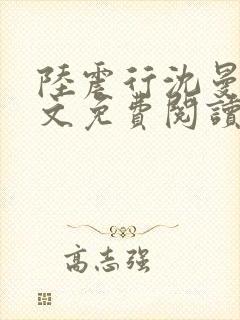 陸震行沈曼
文免費閱讀
高志强